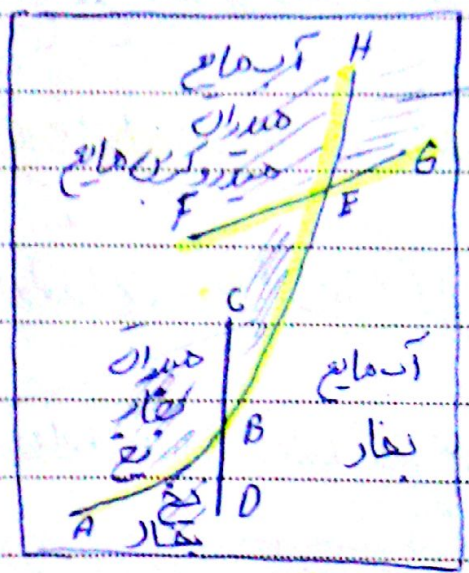 آب مایع
H
هیدرات
هیدروکربن مایع
G
F
E
C
هیدرات
بخار
یخ
آب مایع
بخار
B
یخ
بخار
D
A